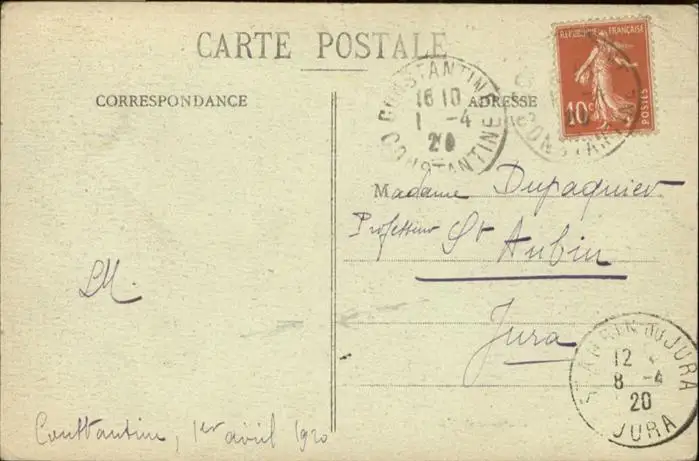 CARTE POSTALE
CORRESPONDANCE
ADRESSE
REPUBLIQUE FRANÇAISE
10c
POSTES
CONSTANTINE
16 10
1 -4
20
CONSTANTINE
CONSTANTINE
Madame Dupaquier
Professeur St Aubin
Jura
LM.
Constantine, 1er avril 1920
ST AUBIN DU JURA
12
8 -4
20
JURA